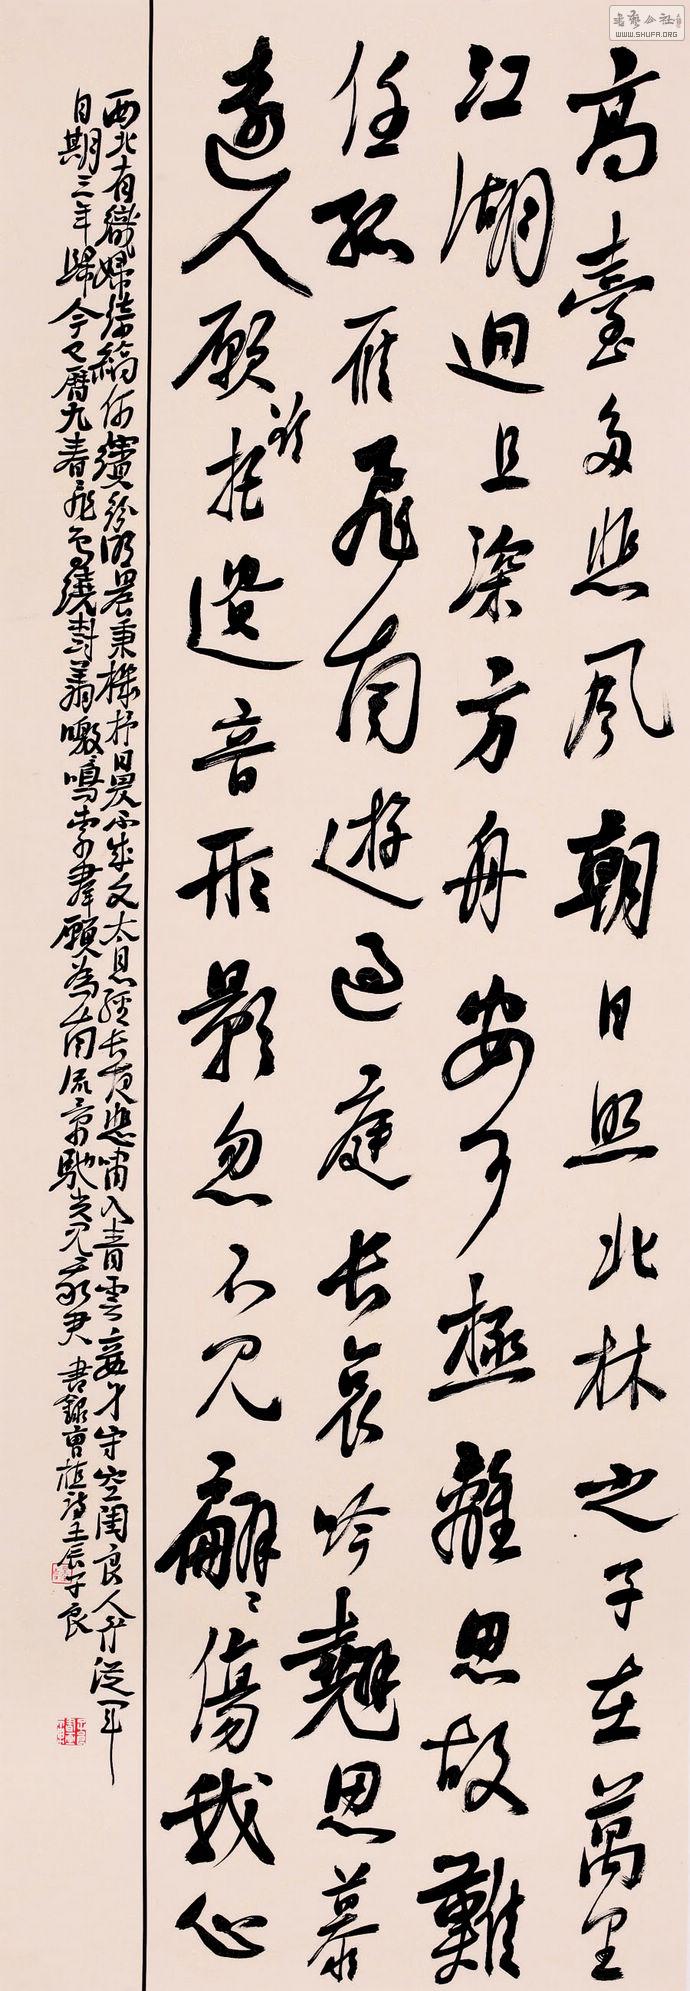 書藝公社
WWW.SHUFA.ORG
高臺多悲風朝日照北林之子在萬里
江湖迥且深方舟安可極離思故難
任孤雁飛南遊過庭長哀吟翹思慕
遠人願欲托遺音形影忽不見翩〻傷我心
西北有織婦綺縞何繽紛明晨秉機杼日昃不成文太息經長夜悲嘯入青雲妾身守空閨良人行從軍
自期三年歸今已曆九春飛鳥繞樹翔噭〻鳴索羣願為南流景馳光見我君 書錄曹植詩壬辰子良